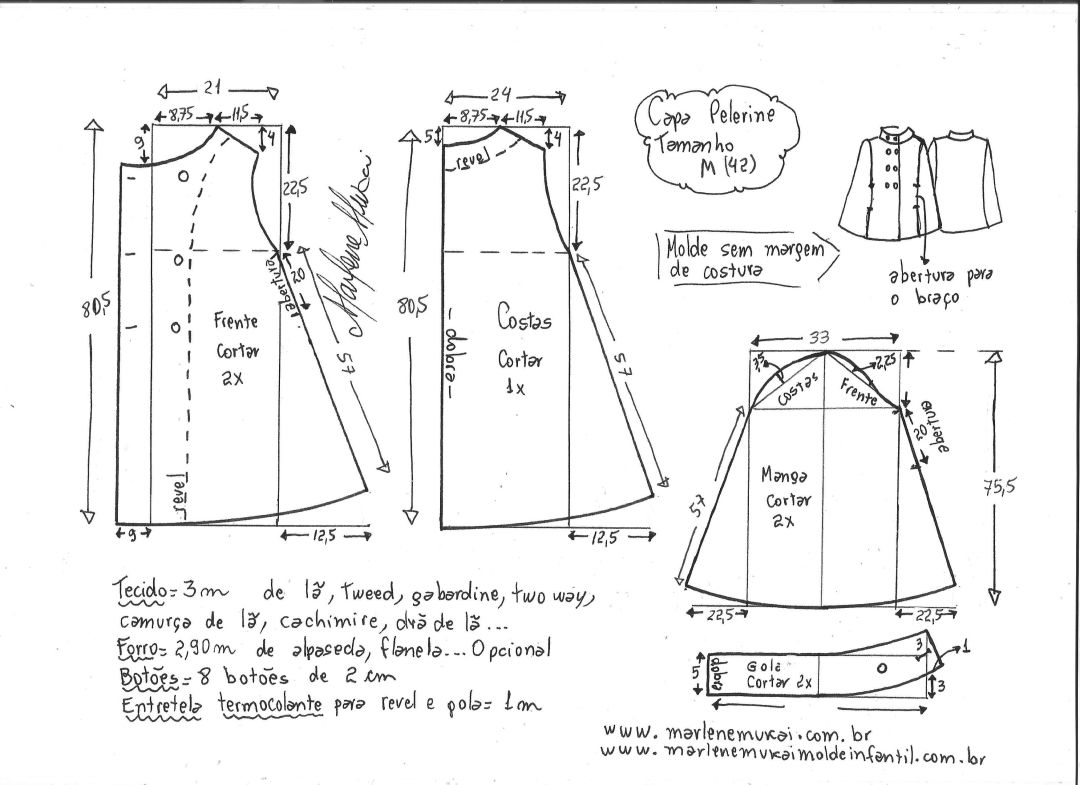 21
8,75
11,5
9
4
22,5
Marlene Mukai
abertura
20
57
80,5
Frente
Cortar
2x
revel
9
12,5
24
8,75
11,5
5
4
revel
22,5
80,5
dobra
Costas
Cortar
1x
57
12,5
Capa Pelerine
Tamanho
M (42)
Molde sem margem
de costura
abertura para
o braço
33
3,5
2,25
Costas
Frente
abertura
20
57
75,5
Manga
Cortar
2x
22,5
22,5
5
dobra
Gola
Cortar 2x
3
1
3
Tecido= 3m de lã, tweed, gabardine, two way,
camurça de lã, cachimire, drã de lã...
Forro= 2,90m de alpaseda, flanela... Opcional
Botões= 8 botões de 2 cm
Entretela termocolante para revel e gola= 1m
www.marlenemukai.com.br
www.marlenemukaimoldeinfantil.com.br